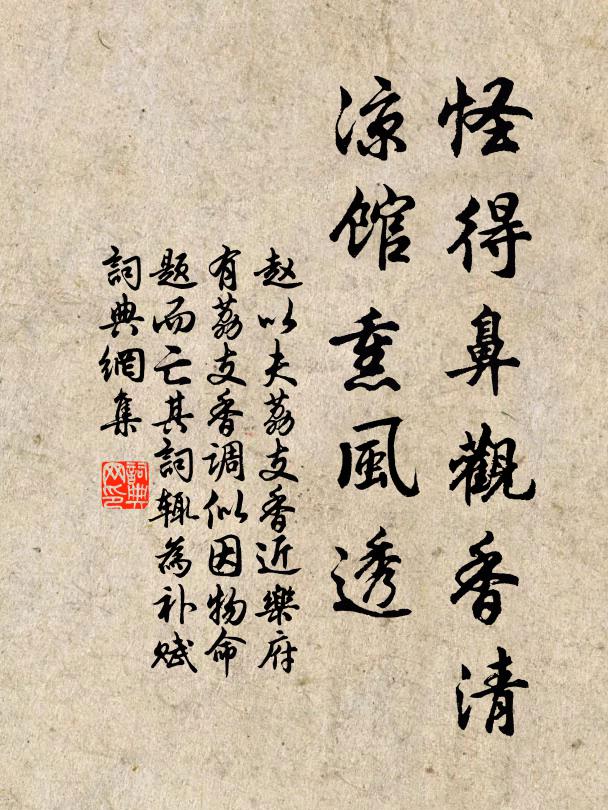 怪得鼻觀香清
涼館熏風透
赵以夫荔支香近樂府
有荔支香调似因物命
题而亡其詞辄為补赋
詞典網集
詞典网印